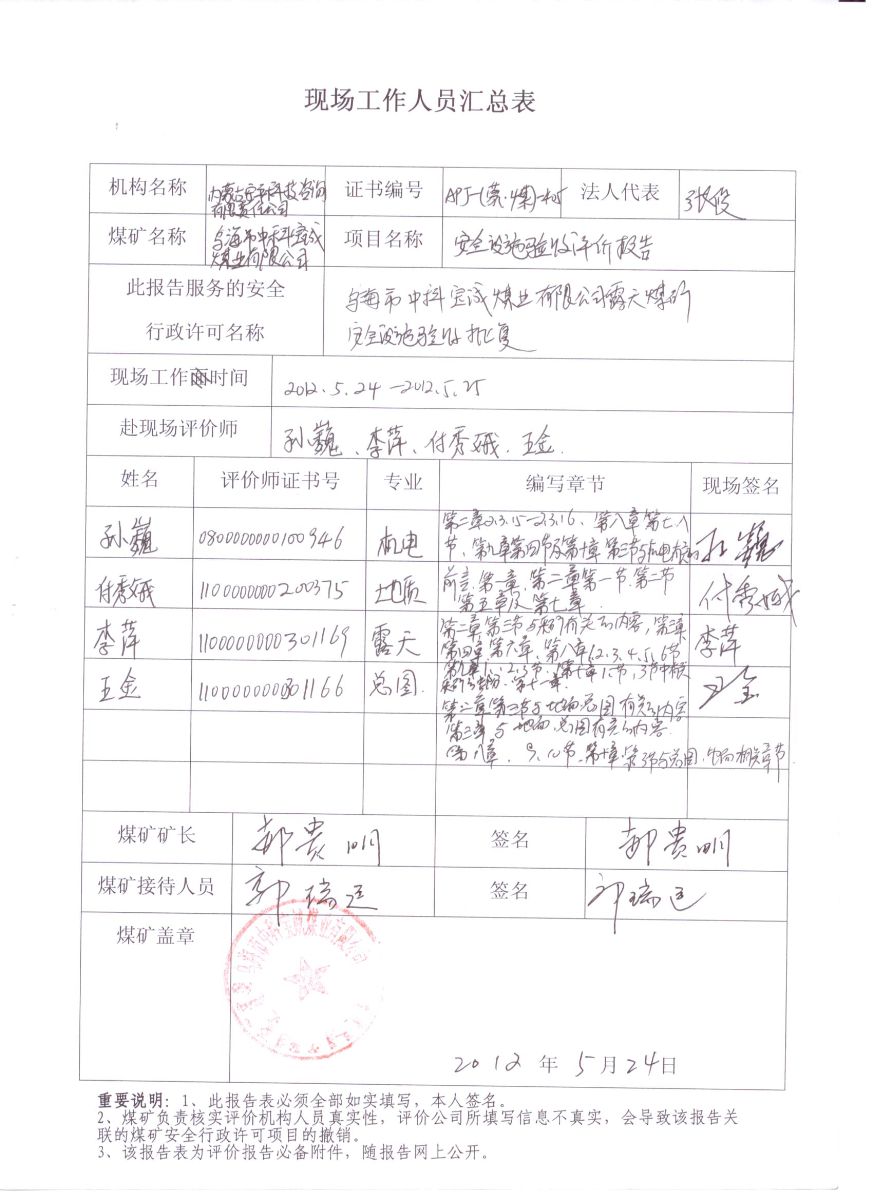 现场工作人员汇总表
机构名称
有限责任公司
证书编号
APJ-(蒙·煤)-405
法人代表
张俊
煤矿名称
乌海市中科宝诚
煤业有限公司
项目名称
安全设施验收评价报告
此报告服务的安全
行政许可名称
乌海市中科宝诚煤业有限公司露天煤矿
安全设施验收批复
现场工作时间
2012.5.24—2012.5.25
赴现场评价师
孙巍、李萍、付秀娥、王金.
姓名 评价师证书号 专业 编写章节 现场签名
孙巍 0800000000100946 机电
第二章2.3.15—2.3.16、第八章第七、八
节、第九章第四节及第十章第三节与机电相关
孙巍
付秀娥 1100000000200375 地质
前言、第一章、第二章第一节、第二节
第五章及第七章
付秀娥
李萍 1100000000301169 露天
第二章第三节与采矿有关的内容,第三章
第四章第六章、第八章1.2.3.4.5.6节
李萍
王金 1100000000301166 总图.
王金
第二章第三节与地面总图有关的内容
第三章与地面总图有关的内容
第八章、9、10节、第十章第3节与总图
煤矿矿长 郝贵明 签名 郝贵明
煤矿接待人员 郭瑞廷 签名 郭瑞廷
煤矿盖章
乌海市中科宝诚煤业有限公司
2012 年 5 月 24 日
重要说明:1、此报告表必须全部如实填写,本人签名。
2、煤矿负责核实评价机构人员真实性,评价公司所填写信息不真实,会导致该报告关
联的煤矿安全行政许可项目的撤销。
3、该报告表为评价报告必备附件,随报告网上公开。